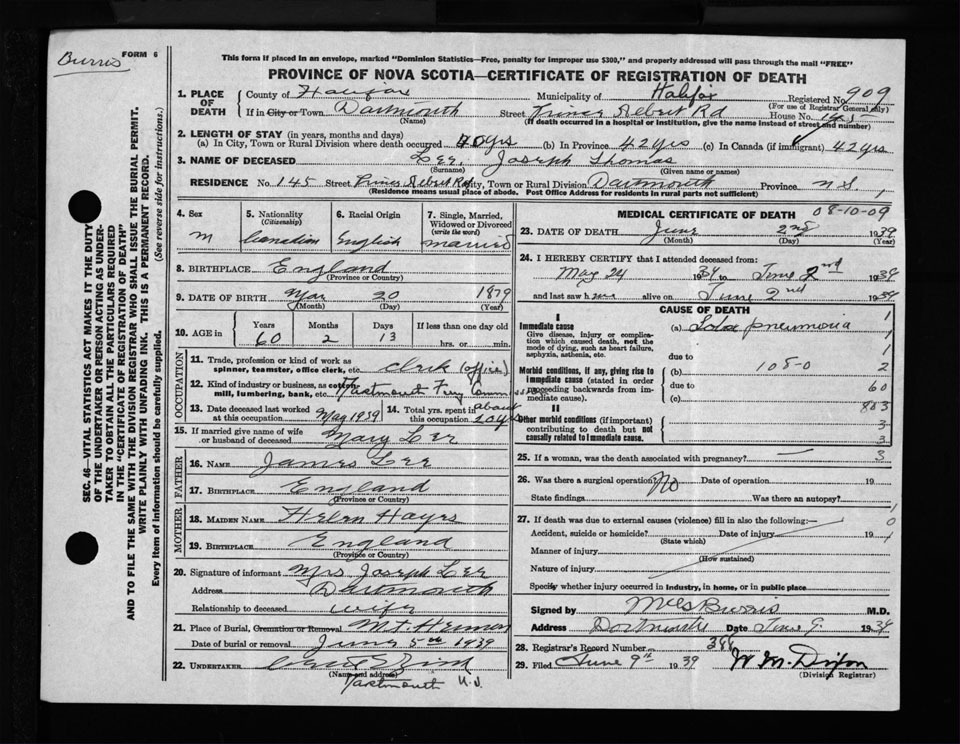 Burris
FORM 6
This form if placed in an envelope, marked "Dominion Statistics—Free, penalty for improper use $300," and properly addressed will pass through the mail "FREE"
PROVINCE OF NOVA SCOTIA—CERTIFICATE OF REGISTRATION OF DEATH
SEC. 46—VITAL STATISTICS ACT MAKES IT THE DUTY
OF THE UNDERTAKER OR PERSON ACTING AS UNDER-
TAKER TO OBTAIN ALL THE PARTICULARS REQUIRED
IN THE "CERTIFICATE OF REGISTRATION OF DEATH"
AND TO FILE THE SAME WITH THE DIVISION REGISTRAR WHO SHALL ISSUE THE BURIAL PERMIT.
WRITE PLAINLY WITH UNFADING INK. THIS IS A PERMANENT RECORD.
Every item of information should be carefully supplied. (See reverse side for instructions.)
1. PLACE OF DEATH County of Halifax Municipality of Halifax Registered No. 909
(For use of Registrar General only)
If in City or Town Dartmouth Street Prince Albert Rd House No. 145
(Name) (If death occurred in a hospital or institution, give the name instead of street and number)
2. LENGTH OF STAY (in years, months and days)
(a) In City, Town or Rural Division where death occurred 40 yrs (b) In Province 42 yrs (c) In Canada (if immigrant) 42 yrs
3. NAME OF DECEASED Lee, Joseph Thomas
(Surname) (Given name or names)
RESIDENCE No. 145 Street Prince Albert Rd City, Town or Rural Division Dartmouth Province N S 1
(Residence means usual place of abode. Post Office Address for residents in rural parts not sufficient)
4. Sex M
5. Nationality (Citizenship) Canadian
6. Racial Origin English
7. Single, Married, Widowed or Divorced (write the word) Married
8. BIRTHPLACE England
(Province or Country)
9. DATE OF BIRTH Mar 20 1879
(Month) (Day) (Year)
10. AGE in Years 60 Months 2 Days 13 If less than one day old
hrs. or min.
OCCUPATION
11. Trade, profession or kind of work as
spinner, teamster, office clerk, etc. clerk (office)
12. Kind of industry or business, as cotton
mill, lumbering, bank, etc. Dartmouth Ferry Comm
13. Date deceased last worked at this occupation May 1939
14. Total yrs. spent in this occupation about 20 yrs
15. If married give name of wife
or husband of deceased Mary Lee
FATHER
16. NAME James Lee
17. BIRTHPLACE England
(Province or Country)
MOTHER
18. MAIDEN NAME Helen Hayes
19. BIRTHPLACE England
(Province or Country)
20. Signature of informant Mrs Joseph Lee
Address Dartmouth
Relationship to deceased wife
21. Place of Burial, Cremation or Removal Mt. Hermon
Date of burial or removal June 5th 1939
22. UNDERTAKER
(Name and address)
Dartmouth N.S.
MEDICAL CERTIFICATE OF DEATH 08-10-09
23. DATE OF DEATH June 2nd 1939
(Month) (Day) (Year)
24. I HEREBY CERTIFY that I attended deceased from:
May 24 1939 to June 2nd 1939
and last saw him alive on June 2nd 1939
CAUSE OF DEATH
I
Immediate cause (a) Lobar pneumonia 1
Give disease, injury or complication which caused death, not the mode of dying, such as heart failure, asphyxia, asthenia, etc. 1
due to 1
Morbid conditions, if any, giving rise to immediate cause (stated in order of proceeding backwards from immediate cause). (b) 108-0 2
due to 60
(c) 803
II
Other morbid conditions (if important) contributing to death but not causally related to immediate cause. 3
3
25. If a woman, was the death associated with pregnancy? — 3
26. Was there a surgical operation? No Date of operation 19
State findings Was there an autopsy?
27. If death was due to external causes (violence) fill in also the following:— 0
Accident, suicide or homicide? Date of injury 19
(State which)
Manner of injury
(How sustained)
Nature of injury
Specify whether injury occurred in industry, in home, or in public place
Signed by Burris M.D.
Address Dartmouth Date June 9 1939
28. Registrar's Record Number
29. Filed June 9th 1939 W. M. Dixon
(Division Registrar)